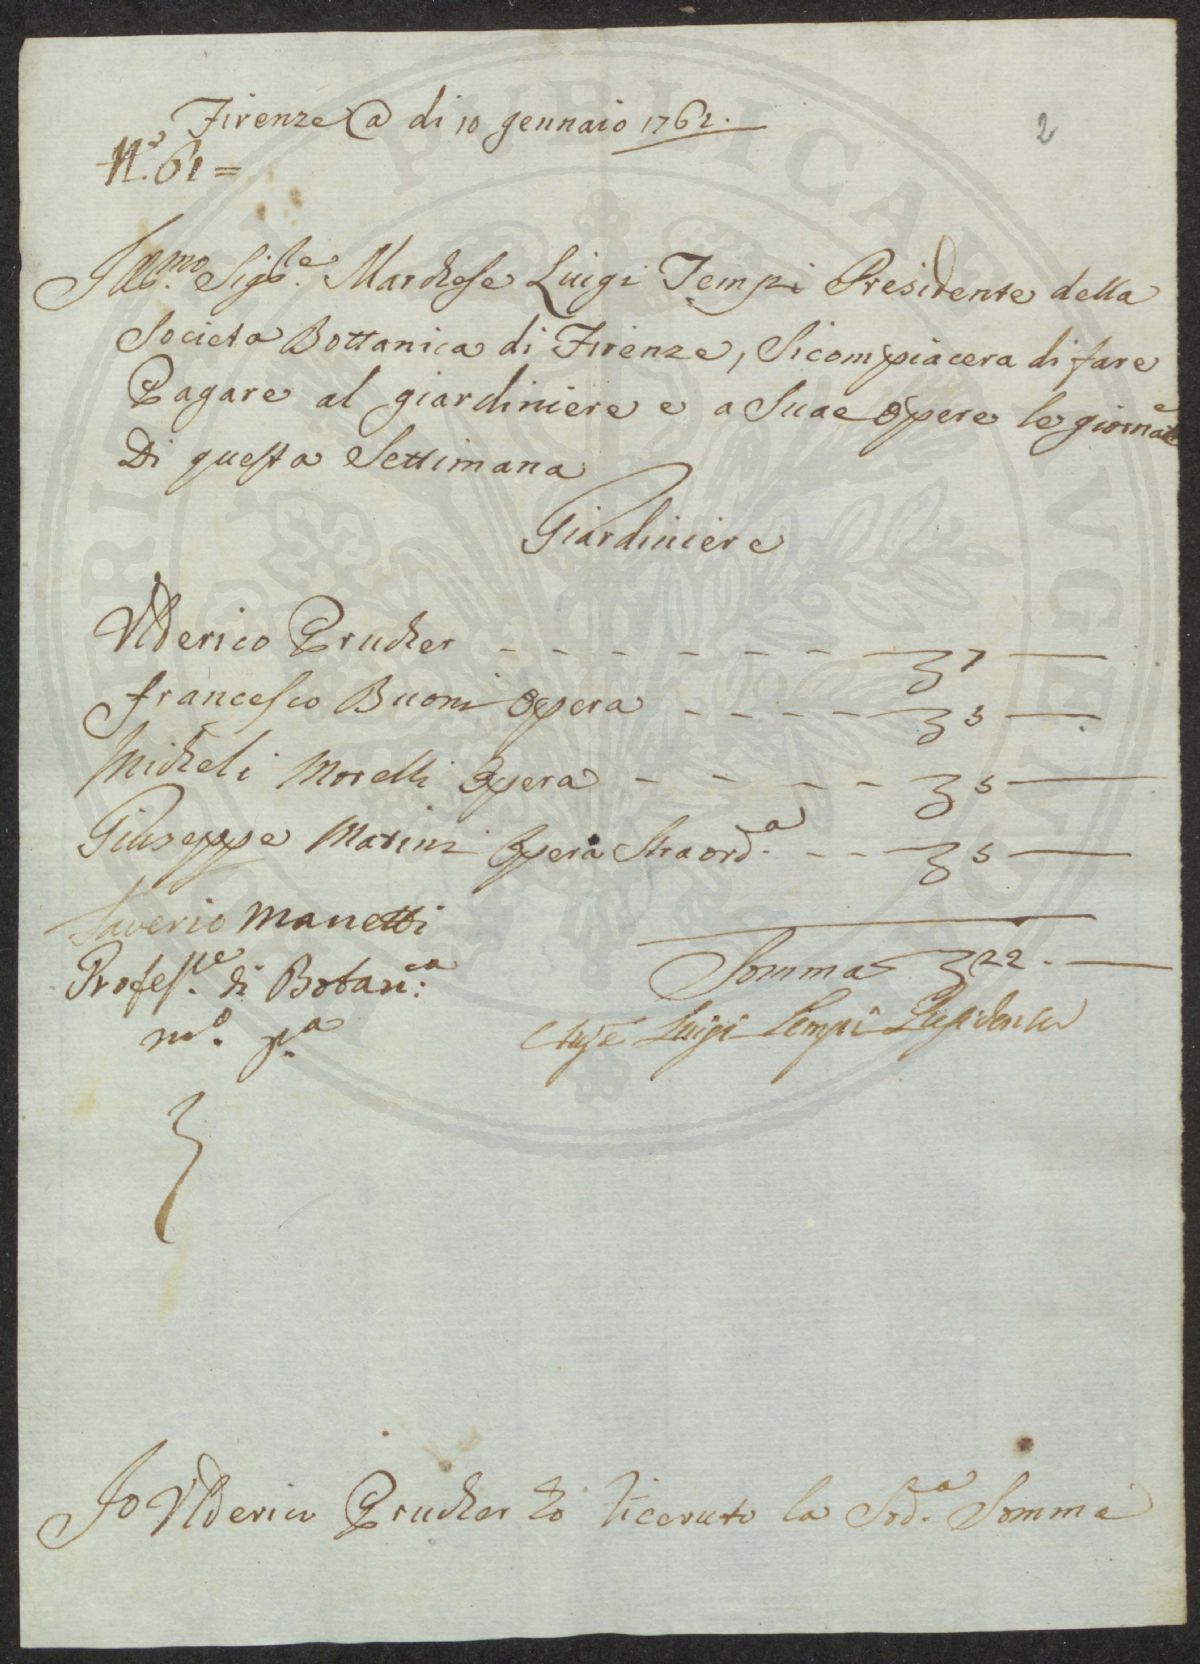 Firenze @ di 10 gennaio 1762.
2
N.º 61 =
Illmo. Sigre. Marchese Luigi Tempi Presidente della
Societa Bottanica di Firenze, Sicompiacera di fare
Pagare al giardiniere e a Suae Opere le giornate
Di questa Settimana
Giardiniere
Ulderico Prucher - - - - - - - 7 —
Francesco Buoni Opera - - - - 5 —
Micheli Morelli Opera - - - - - 5 —
Giuseppe Marini Opera Straord.a - - - 5 —
Saverio Manetti
Profess.re di Botan:ca
m.º p.a
Somma 22. —
Luigi Tempi Presidente
Io Ulderico Prucher ho riceuuto la Sod.a Somma